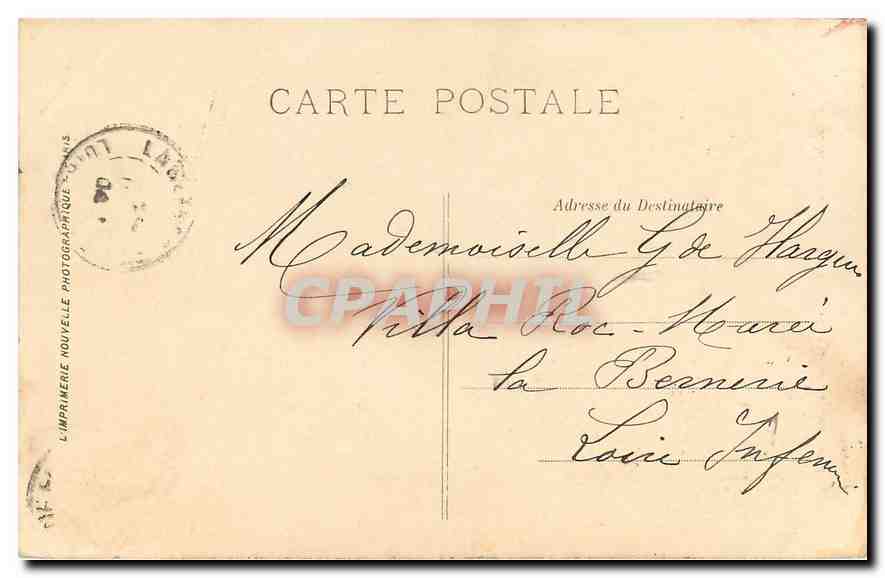 CARTE POSTALE
Adresse du Destinataire
Mademoiselle G de Hargues
Villa Roc-Marée
La Bernerie
Loire Infer
CPAPHIL
L'IMPRIMERIE NOUVELLE PHOTOGRAPHIQUE - PARIS
04